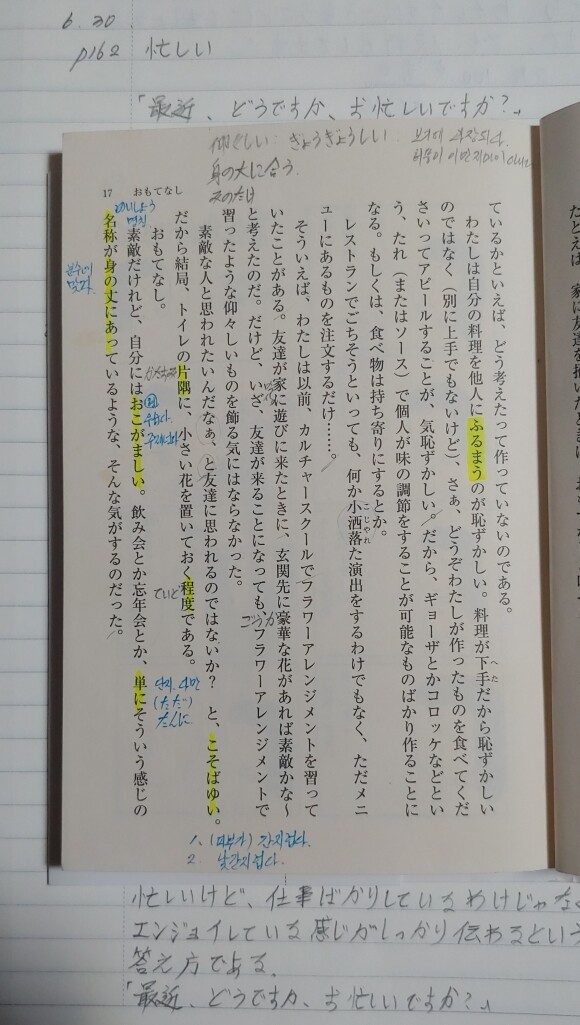 6.30
p162 忙しい
「最近、どうですか、お忙しいですか?」
仰々しい:ぎょうぎょうしい
身の丈に合う
みのたけ
17 おもてなし
ているかといえば、どう考えたって作っていないのである。
わたしは自分の料理を他人にふるまうのが恥ずかしい。料理が下手だから恥ずかしい
へた
のではなく(別に上手でもないけど)、さぁ、どうぞわたしが作ったものを食べてくだ
さいってアピールすることが、気恥ずかしい。だから、ギョーザとかコロッケなどとい
う、たれ(またはソース)で個人が味の調節をすることが可能なものばかり作ることに
なる。もしくは、食べ物は持ち寄りにするとか。
レストランでごちそうといっても、何か小洒落た演出をするわけでもなく、ただメニ
こじゃれ
ューにあるものを注文するだけ……。
そういえば、わたしは以前、カルチャースクールでフラワーアレンジメントを習って
いたことがある。友達が家に遊びに来たときに、玄関先に豪華な花があれば素敵かな〜
ごうか
と考えたのだ。だけど、いざ、友達が来ることになっても、フラワーアレンジメントで
習ったような仰々しいものを飾る気にはならなかった。
素敵な人と思われたいんだなぁ、と友達に思われるのではないか? と、こそばゆい。
1. (피부가) 간지럽다.
2. 낯간지럽다.
だから結局、トイレの片隅に、小さい花を置いておく程度である。
かたすみ
ていど
おもてなし。
素敵だけれど、自分にはおこがましい。飲み会とか忘年会とか、単にそういう感じの
단지, 다만
(ただ)
たんに
名称が身の丈にあっているような、そんな気がするのだった。
めいしょう
명칭
분수에
맞다.
忙しいけど、仕事ばかりしているわけじゃな
エンジョイしている感じがしっかり伝わるという
答え方である。
「最近、どうですか、お忙しいですか?」